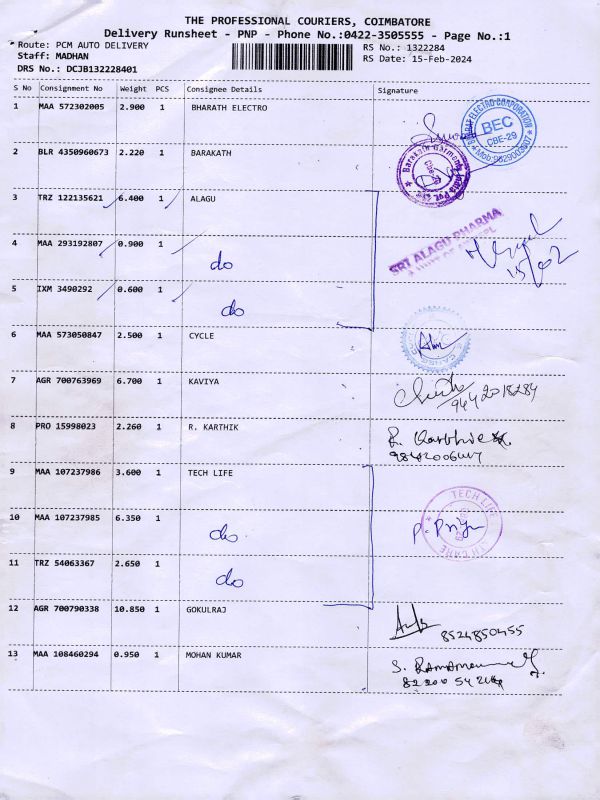 THE PROFESSIONAL COURIERS, COIMBATORE
Delivery Runsheet - PNP - Phone No.:0422-3505555 - Page No.:1
Route: PCM AUTO DELIVERY RS No.: 1322284
Staff: MADHAN RS Date: 15-Feb-2024
DRS No.: DCJB132228401
S No Consignment No Weight PCS Consignee Details Signature
1 MAA 572302005 2.900 1 BHARATH ELECTRO
BHARAT ELECTRO CORPORATION
BEC
CBE-29
2 BLR 4350960673 2.220 1 BARAKATH
Barakath Garments
3 TRZ 122135621 6.400 1 ALAGU
SRI ALAGU PHARMA
4 MAA 293192807 0.900 1 do
15/02
5 IXM 3490292 0.600 1 do
6 MAA 573050847 2.500 1 CYCLE
7 AGR 700763969 6.700 1 KAVIYA
9442018284
8 PRO 15998023 2.260 1 R. KARTHIK
R. Karthick
9 MAA 107237986 3.600 1 TECH LIFE
TECH LIFE
10 MAA 107237985 6.350 1 do
P. Priya
11 TRZ 54063367 2.650 1 do
12 AGR 700790338 10.850 1 GOKULRAJ
8524850455
13 MAA 108460294 0.950 1 MOHAN KUMAR